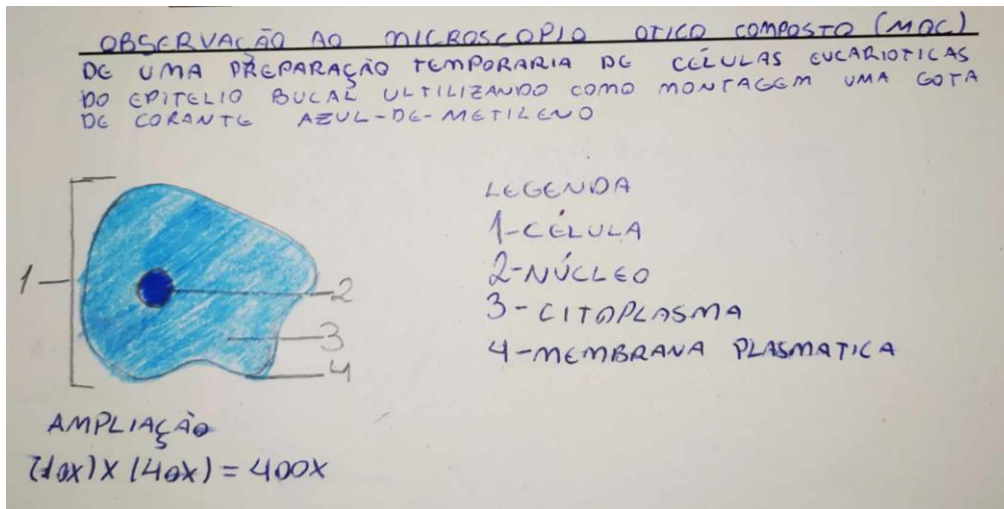 OBSERVAÇÃO AO MICROSCOPIO OTICO COMPOSTO (MOC)
DE UMA PREPARAÇÃO TEMPORARIA DE CÉLULAS EUCARIOTICAS
DO EPITELIO BUCAL ULTILIZANDO COMO MONTAGEM UMA GOTA
DE CORANTE AZUL-DE-METILENO
LEGENDA
1-CÉLULA
2-NÚCLEO
3-CITOPLASMA
4-MEMBRANA PLASMATICA
1
2
3
4
AMPLIAÇÃO
(10x)X(40x)=400X